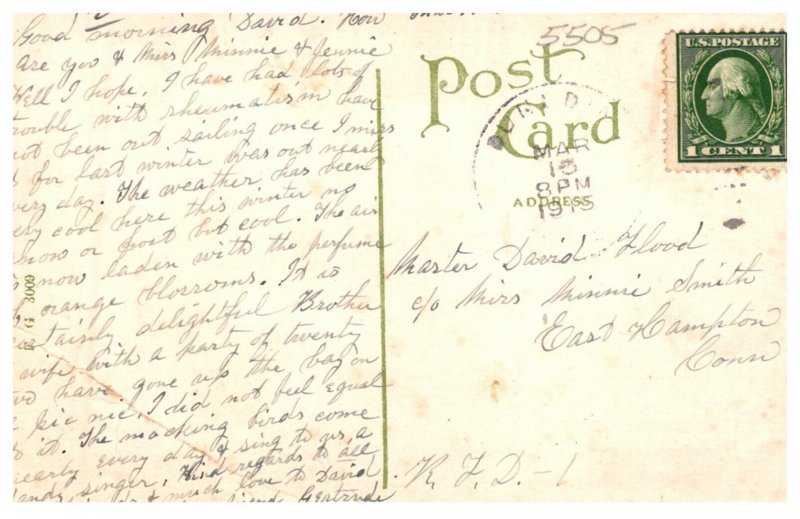 Good morning David. How
are you & Miss Minnie & Jennie
Well I hope. I have had lots of
trouble with rheumatism have
not been out sailing once I miss
for last winter was out nearly
every day. The weather has been
very cool here this winter no
snow or frost but cool. The air
now laden with the perfume
orange blossoms. It is
delightful Brother
wife with a party of twenty
two have gone up the bay on
pic nic. I did not feel equal
to it. The mocking birds come
nearly every day & sing to us, a
singer. Kind regards to all
& much love to David
friend Gertrude
E G 3009
5505
Post
Card
U.S. POSTAGE
1 CENT 1
DUNEDIN
MAR
15
8 PM
ADDRESS
Master David Flood
c/o Miss Minnie Smith
East Hampton
Conn
R F D - 1